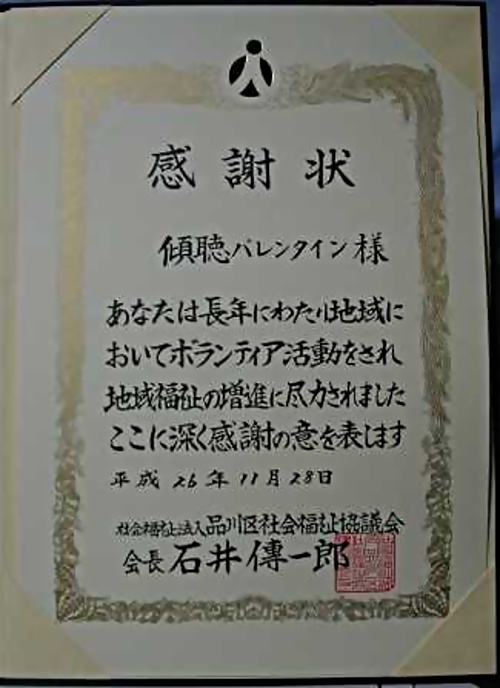 感謝状
傾聴バレンタイン様
あなたは長年にわたり地域に
おいてボランティア活動をされ
地域福祉の増進に尽力されました
ここに深く感謝の意を表します
平成26年11月28日
社会福祉法人品川区社会福祉協議会
会長 石井傳一郎